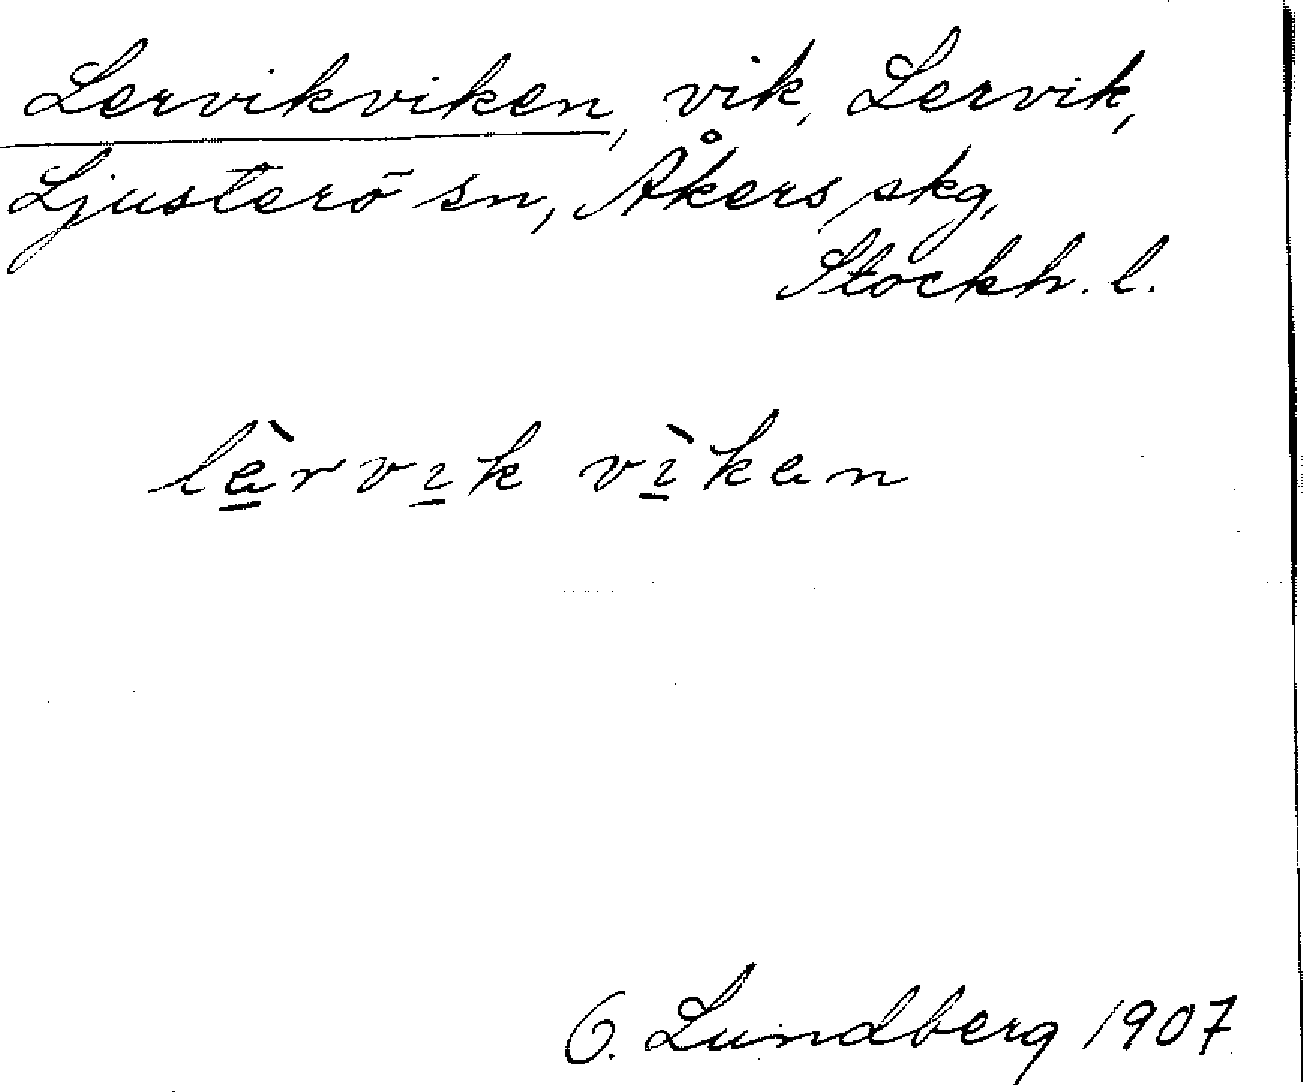 Lervikviken, vik, Lervik,
Ljusterö sn, Åkers skg,
Stockh. l.
lèrvık vı̀ken
O. Lundberg 1907